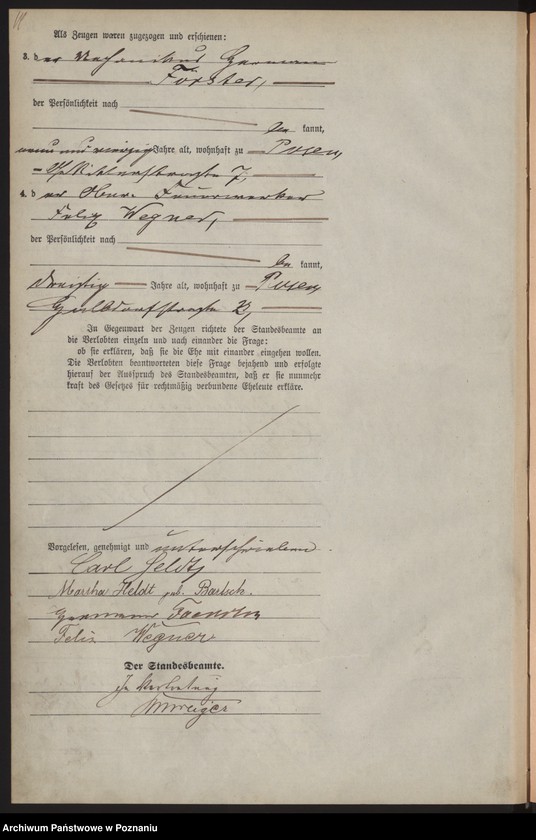 Als Zeugen waren zugezogen und erschienen:
3. der Mechanikus Hermann
Förster,
der Persönlichkeit nach
be kannt,
neun und vierzig Jahre alt, wohnhaft zu Posen,
7,
4. der Ober-Feuerwerker
Felix Wegner,
der Persönlichkeit nach
be kannt,
dreißig Jahre alt, wohnhaft zu Posen
In Gegenwart der Zeugen richtete der Standesbeamte an
die Verlobten einzeln und nach einander die Frage:
ob sie erklären, daß sie die Ehe mit einander eingehen wollen.
Die Verlobten beantworteten diese Frage bejahend und erfolgte
hierauf der Ausspruch des Standesbeamten, daß er sie nunmehr
kraft des Gesetzes für rechtmäßig verbundene Eheleute erkläre.
Vorgelesen, genehmigt und unterschrieben.
Carl Heldt
Martha Heldt geb. Bartsch.
Hermann Foerster
Felix Wegner
Der Standesbeamte.
In Vertretung
Archiwum Państwowe w Poznaniu